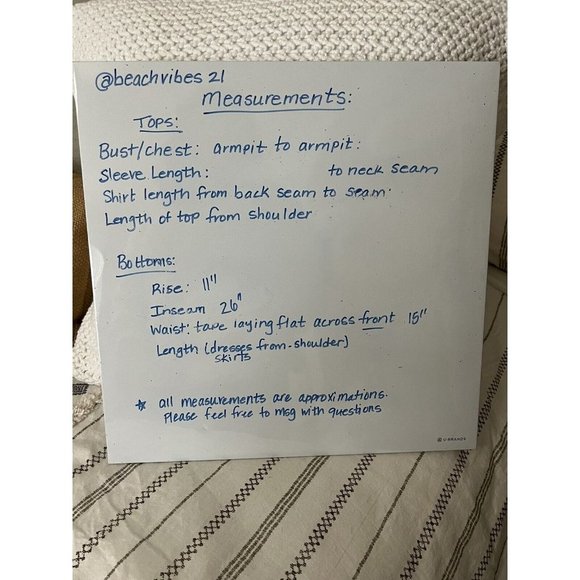 @beachvibes 21
Measurements:
Tops:
Bust/chest: armpit to armpit:
Sleeve Length: to neck seam
Shirt length from back seam to seam.
Length of top from shoulder
Bottoms:
Rise: 11"
Inseam 26"
Waist: tape laying flat across front 15"
Length (dresses from-shoulder)
skirts
☆ all measurements are approximations.
Please feel free to msg with questions
U BRANDS